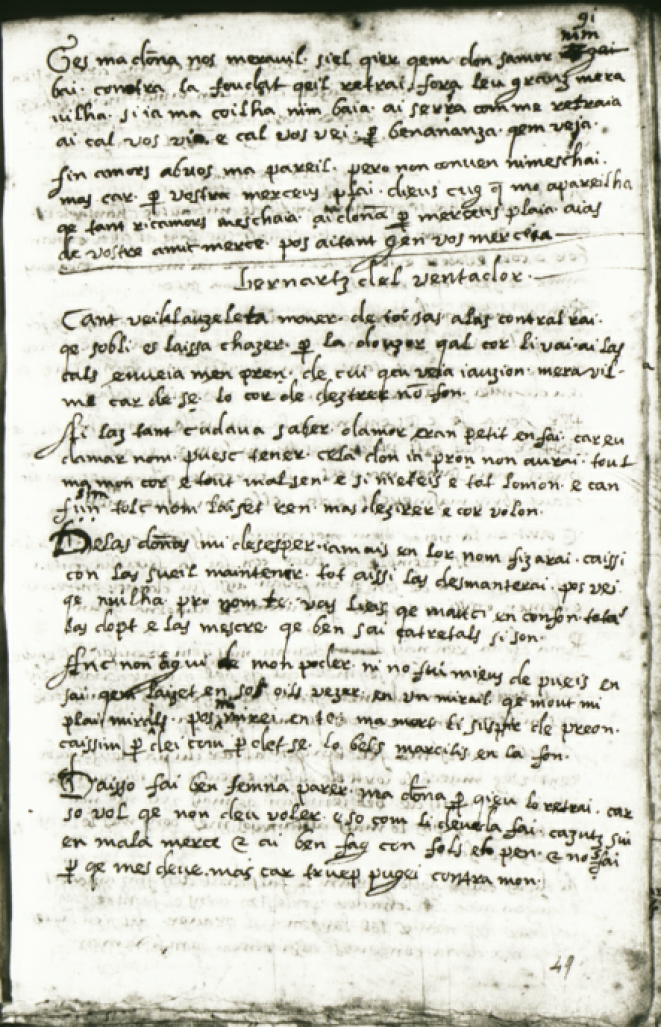 91
nim
Ges ma dōna nos meravil. siel qier qem don samor gai
bai. contra la foudat qeil retrai. fora leu granz mera
vilha. si ia ma coilha nim baia. ai serra com me retraia
ai cal vos via. e cal vos vei. ꝑ benananza. qem veia.
fin amors abvos ma pareil. pero non conven nimeschai.
mas car. ꝑ vostra merceus plai. dieus cug q̄ mo apareilha
qe tant ricamors meschaia. ai dōna ꝑ merceus plaia. aias
de vostre amic merce. pos aitant gen vos merceia
Bernartz del ventador.
Cant vei la lauzeleta mover. de ioi sas alas contral rai.
qe sobli es laissa chazer. ꝑ la douzor qal cor li vai. ai las
cals enveia men pren. de cui qeu veia iauzion. meravil-
me car de se lo cor de deztrer nō fon.
Ai las tant cudava saber damor eran petit en sai. car eu
damar nom puesc tener. cela don ia pron non aurai. tout
ma mon cor e tout mal sen. e si meteis e tal lomon. e can
sim tolc nom laiset ren. mas dezirer e cor volon.
Delas dōnas mi desesper. iamais en lor nom fizarai. caissi
con las sueil mantener. tot aissi las desmanterai. pos vei
qe nuilha pro nom te. vas lieis qe mauci en confon. totas
las dopt e las mescre. qe ben sai catretals si son.
Anc non agui de mon poder. ni no fui mieus de pueis en
sai. qem laiset en sos oils vezer. en un mirail qe mout mi
plai mirals. pos mirei en te. ma mort li sospir de preon.
caissim ꝑdei com ꝑdet se. lo bels marcilis en la fon.
Daisso fai ben femna parer. ma dōna ꝑ qieu lo retrai. car
so vol qe non deu voler. e so com li deveda fai. cazutz sui
en mala merce & ai ben fag con fols el pon. & no sai
ꝑ qe mes deve. mas car truep pugei contra mon.
49